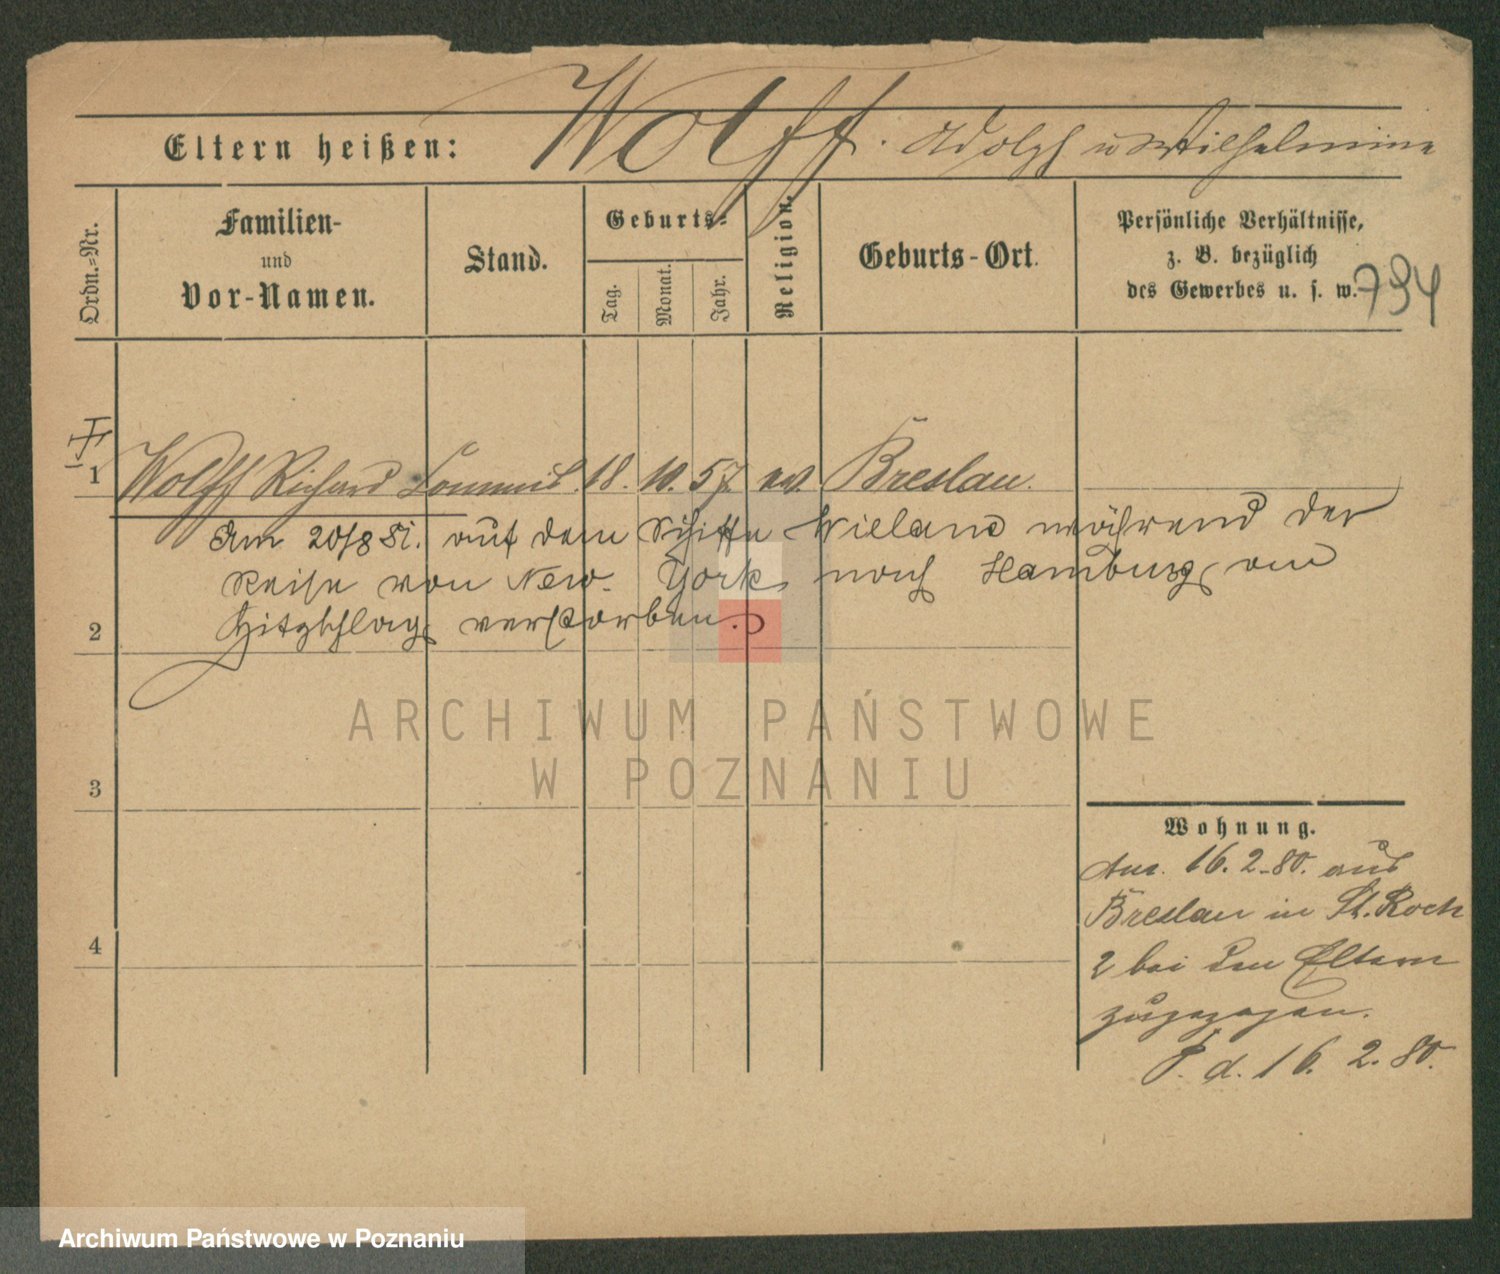 Wolff. Adolph u Wilhelmine
Eltern heißen:
Ordn.=Nr.
Familien-
und
Vor-Namen.
Stand.
Geburts=
Tag.
Monat.
Jahr.
Religion.
Geburts-Ort.
Persönliche Verhältnisse,
z. B. bezüglich
des Gewerbes u. s. w.
794
1
Wolff Richard Commis. 18. 10. 57. ev. Breslau.
Am 20/8 81. auf dem Schiffe Wieland während der
Reise von New-York nach Hamburg am
Hitzschlage verstorben.
2
3
4
Wohnung.
16. 2. 80. aus
Breslau in St. Roch
2 bei den Eltern
zugezogen.
P. d. 16. 2. 80.
ARCHIWUM PAŃSTWOWE
W POZNANIU
Archiwum Państwowe w Poznaniu